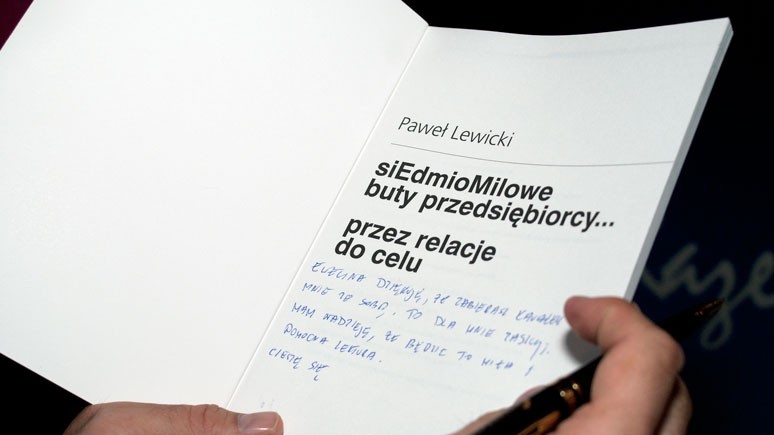 Paweł Lewicki
siEdmioMilowe
buty przedsiębiorcy...
przez relacje
do celu
EWELINA DZIĘKUJĘ, ŻE ZABIERASZ
MNIE ZE SOBĄ, TO DLA MNIE
MAM NADZIEJĘ, ŻE BĘDZIE TO MIŁA I
POMOCNA LEKTURA.
CIESZĘ SIĘ